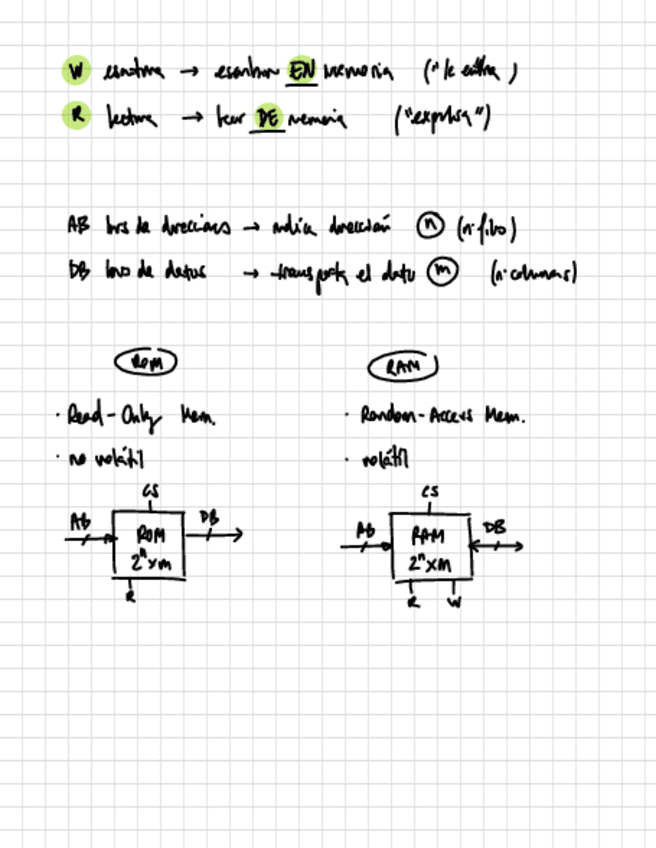 W escritura → escribir EN memoria ("le entra")
R lectura → leer DE memoria ("expulsa")
AB bus de direcciones → indica dirección n (nº filas)
DB bus de datos → transporta el dato m (nº columnas)
ROM
· Read-Only Mem.
· no volátil
CS
AB
DB
ROM
2ⁿxm
R
RAM
· Random-Access Mem.
· volátil
CS
AB
DB
RAM
2ⁿxm
R W